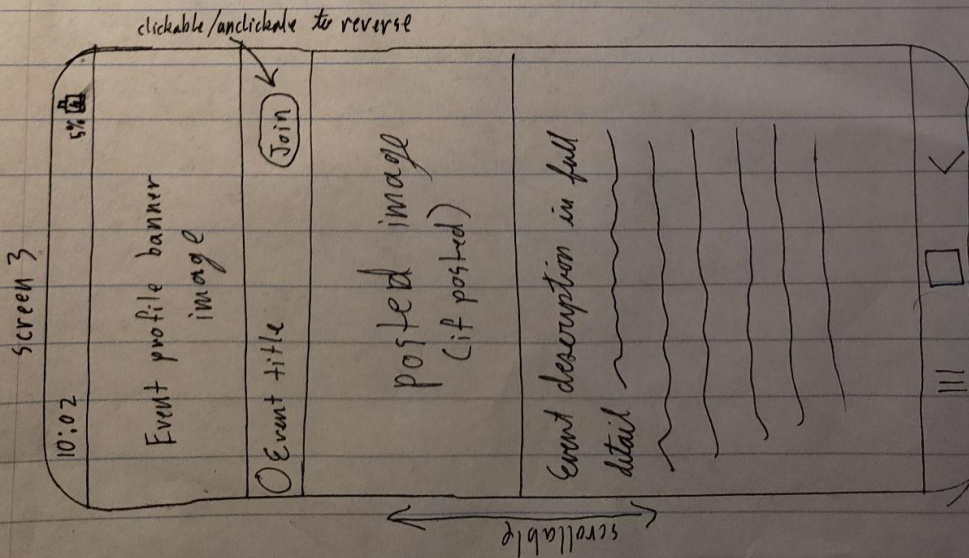 Screen 3
clickable/unclickable to reverse
10:02 5%
Event profile banner
image
Event title Join
posted image
(if posted)
Event description in full
detail
scrollable